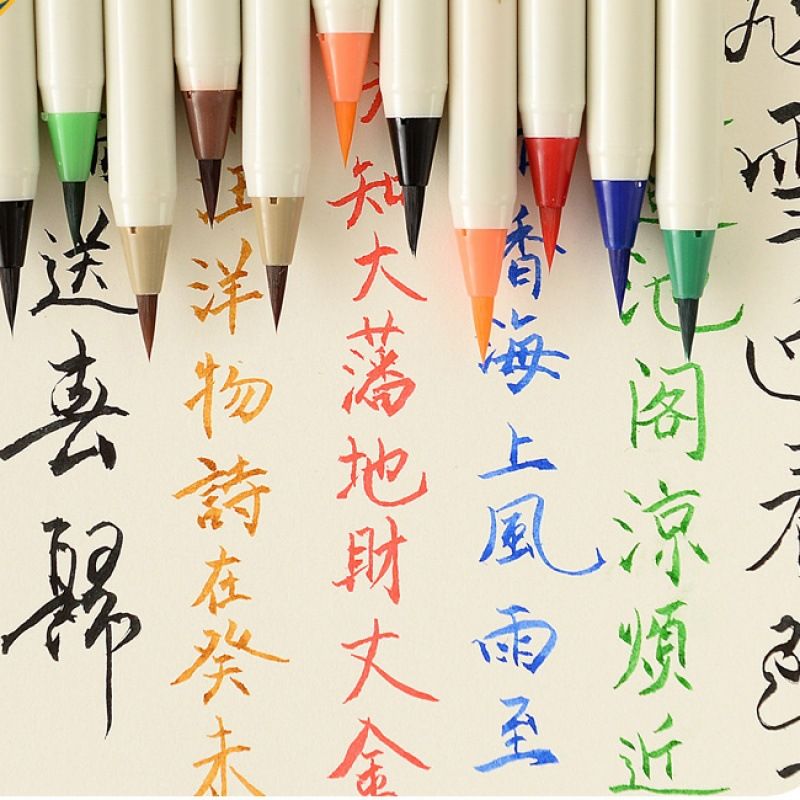 送春歸
洋物詩在癸未
知大藩地財丈金
香海上風雨至
池閣涼煩近
雪迎春